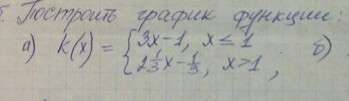 5. Построить график функции:
а) k(x) = { 3x-1, x ≤ 1
2 1/3 x - 1/3, x > 1 ; б)